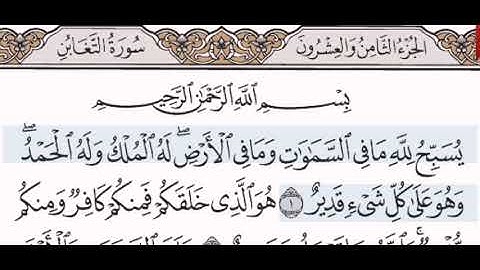 الجُزْءُ الثَّامِنُ وَالعِشْرُونَ سُورَةُ التَّغَابُنِ
بِسْمِ اللَّهِ الرَّحْمَٰنِ الرَّحِيمِ
يُسَبِّحُ لِلَّهِ مَا فِي السَّمَاوَاتِ وَمَا فِي الْأَرْضِ ۖ لَهُ الْمُلْكُ وَلَهُ الْحَمْدُ ۖ
وَهُوَ عَلَىٰ كُلِّ شَيْءٍ قَدِيرٌ ١ هُوَ الَّذِي خَلَقَكُمْ فَمِنكُمْ كَافِرٌ وَمِنكُم